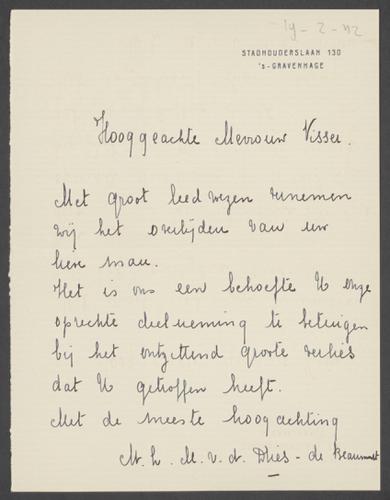 19-2-42
STADHOUDERSLAAN 130
'S-GRAVENHAGE
Hooggeachte Mevrouw Visser.
Met groot leedwezen vernemen
wij het overlijden van uw
lieve man.
Het is ons een behoefte U onze
oprechte deelneming te betuigen
bij het ontzettend groote verlies
dat U getroffen heeft.
Met de meeste hoogachting
M. v. d. - de Beaumont